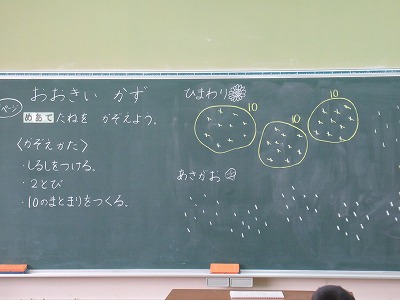 おおきい かず
ページ
めあて たねを かぞえよう。
〈かぞえかた〉
・しるしをつける。
・2とび
・10のまとまりをつくる。
ひまわり
10
10
10
あさがお